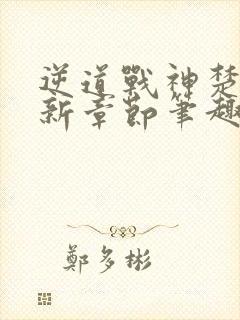 逆道戰神楚
新章節筆趣
鄭多彬